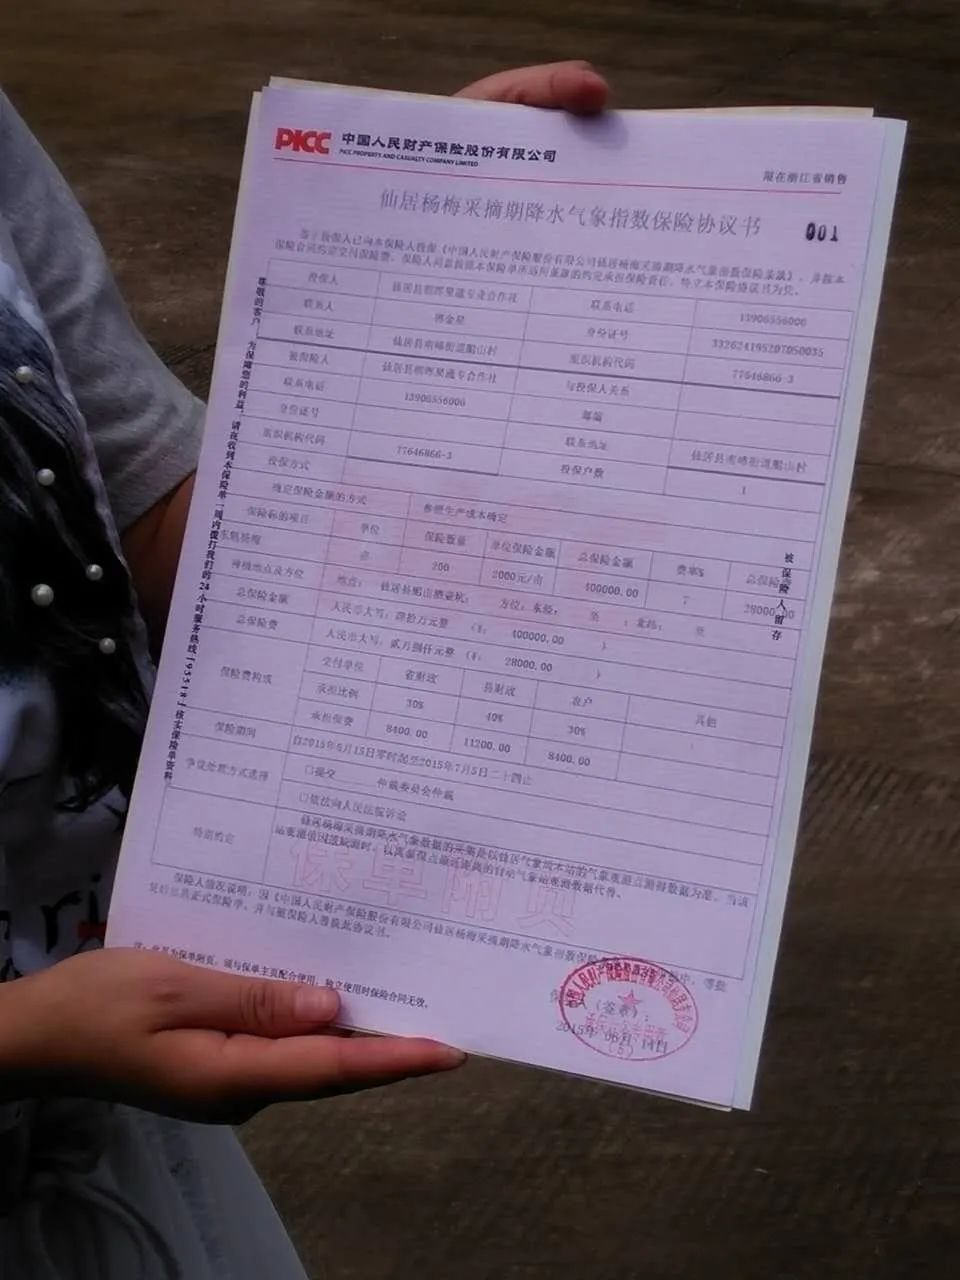 PICC 中国人民财产保险股份有限公司
PICC PROPERTY AND CASUALTY COMPANY LIMITED
限在浙江省销售
仙居杨梅采摘期降水气象指数保险协议书
001
鉴于投保人已向本保险人投保《中国人民财产保险股份有限公司仙居杨梅采摘期降水气象指数保险条款》，并按本
保险合同约定交付保险费，保险人同意按照本保险单所适用条款的约定承担保险责任，特立本保险协议书为凭。
尊敬的客户：为保障您的利益，请在收到本保险单一周内拨打我们的24小时服务热线「95518」核实保险单资料。
投保人 仙居县朝晖果蔬专业合作社 联系电话 13906556006
联系人 金星 身份证号 332624195207050035
联系地址 仙居县南峰街道 山村 组织机构代码 77646866-3
被保险人 仙居县朝晖果蔬专合作社 与投保人关系
联系电话 13906556006 邮编
身份证号 联系地址 仙居县南峰街道 山村
组织机构代码 77646866-3 投保户数 1
投保方式
确定保险金额的方式 参照生产成本确定
保险标的项目 单位 保险数量 单位保险金额 总保险金额 费率% 总保险费
东魁杨梅 亩 200 2000元/亩 400000.00 7 28000.00
种植地点及方位 地点： 仙居县 山 方位：东经： 至 ；北纬： 至
总保险金额 人民币大写：肆拾万元整 （￥： 400000.00 ）
总保险费 人民币大写：贰万捌仟元整 （￥： 28000.00 ）
保险费构成 交付单位 省财政 县财政 农户 其他
承担比例 30% 40% 30%
承担保费 8400.00 11200.00 8400.00
保险期间 自2015年6月15日零时起至2015年7月5日二十四止
争议处理方式选择 □提交 仲裁委员会仲裁
□依法向人民法院诉讼
特别约定 仙居杨梅采摘期降水气象数据的采集是以仙居气象成本站的气象观测点测得数据为准。当该
站观测值因波缺测时，以离参保点最近距离的自动气象站观测数据代替。
保单附页
被保险人留存
保险人情况说明：因《中国人民财产保险股份有限公司仙居杨梅采摘期降水气象指数保险
后出具正式保险单，并与被保险人签换此协议书。
注：此单为保单附页，须与保单主页配合使用，独立使用时保险合同无效。
（签章）：
2015年 06月 14日